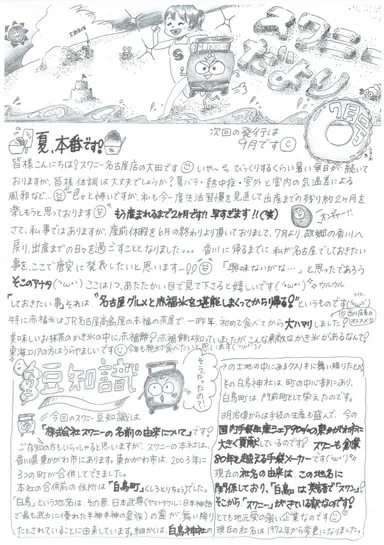 スワニーだより
7月号
次回の発行は
9月です
夏、本番です!
皆様こんにちは!スワニー名古屋店の大田です いや〜、びっくりするくらい暑い毎日が続いて
おりますが、皆様体調は大丈夫でしょうか?夏バテ・熱中症・室外と室内の気温差による
風邪など… 色々と怖いですが、私も今一度生活習慣を見直して出産までの残り約2ヶ月を
楽しもうと思っております もう産まれるまで2ヶ月です!!早すぎます!!(笑)
さて、私事ではありますが、産前休暇を6月の終わりより頂いておりまして、7月より故郷の香川へ
戻り、出産までの日々を過ごすこととなりました。。。 香川に帰るまでに、私が名古屋でしておきたい
事を、ここで勝手に発表したいと思います-!! 「興味ないがな…」と思ったであろう
そこのアナタ ここは1つ、あたたかい目で見て下さると嬉しいです ウルウル
「しておきたい事」それは“名古屋グルメと赤福氷を堪能しまくってから帰る!”というものです
特に赤福氷はJR名古屋高島屋の赤福の茶屋で、一昨年、初めて食べてから大ハマりしました!
美味しいお抹茶のかき氷の中に赤福餅!赤福餅は知っていましたが、こんな素敵なかき氷があるなんて!
東海エリアの方はうらやましいです 今年も絶対食べたいと思います
豆知識
今回のスワニー豆知識は
「株式会社スワニーの名前の由来について」です
ご存知の方もいらっしゃると思いますが、スワニーの本社は、
香川県東かがわ市にあります。東かがわ市は、2003年に
3つの町が合併してできました。
本社の合併前の住所は「白鳥町」(しろとりちょう)でした。
「白鳥」という地名は、その昔、日本武尊(ヤマトタケル:日本神話
で最も武力に優れた半神半尊の皇族)の霊が、舞い降り
たとされていることに由来しています。細かくは、白鳥神社
その白鳥神社は、町の中心部にあり、
白鳥町は、門前町として栄えたのです。
明治頃からは手袋の生産も盛んで、今の
国内手袋生産シェア90%の東かがわ市に
大きく貢献しているのです!スワニーも創業
80年を超える手袋メーカーです
現在の社名の由来は、この地名に
関係しており、「白鳥」は英語で「スワン」。
そこから「スワニー」がきている訳なのです!
とても地元愛の強い企業なのです
現在の社名は1972年から変更になりました。